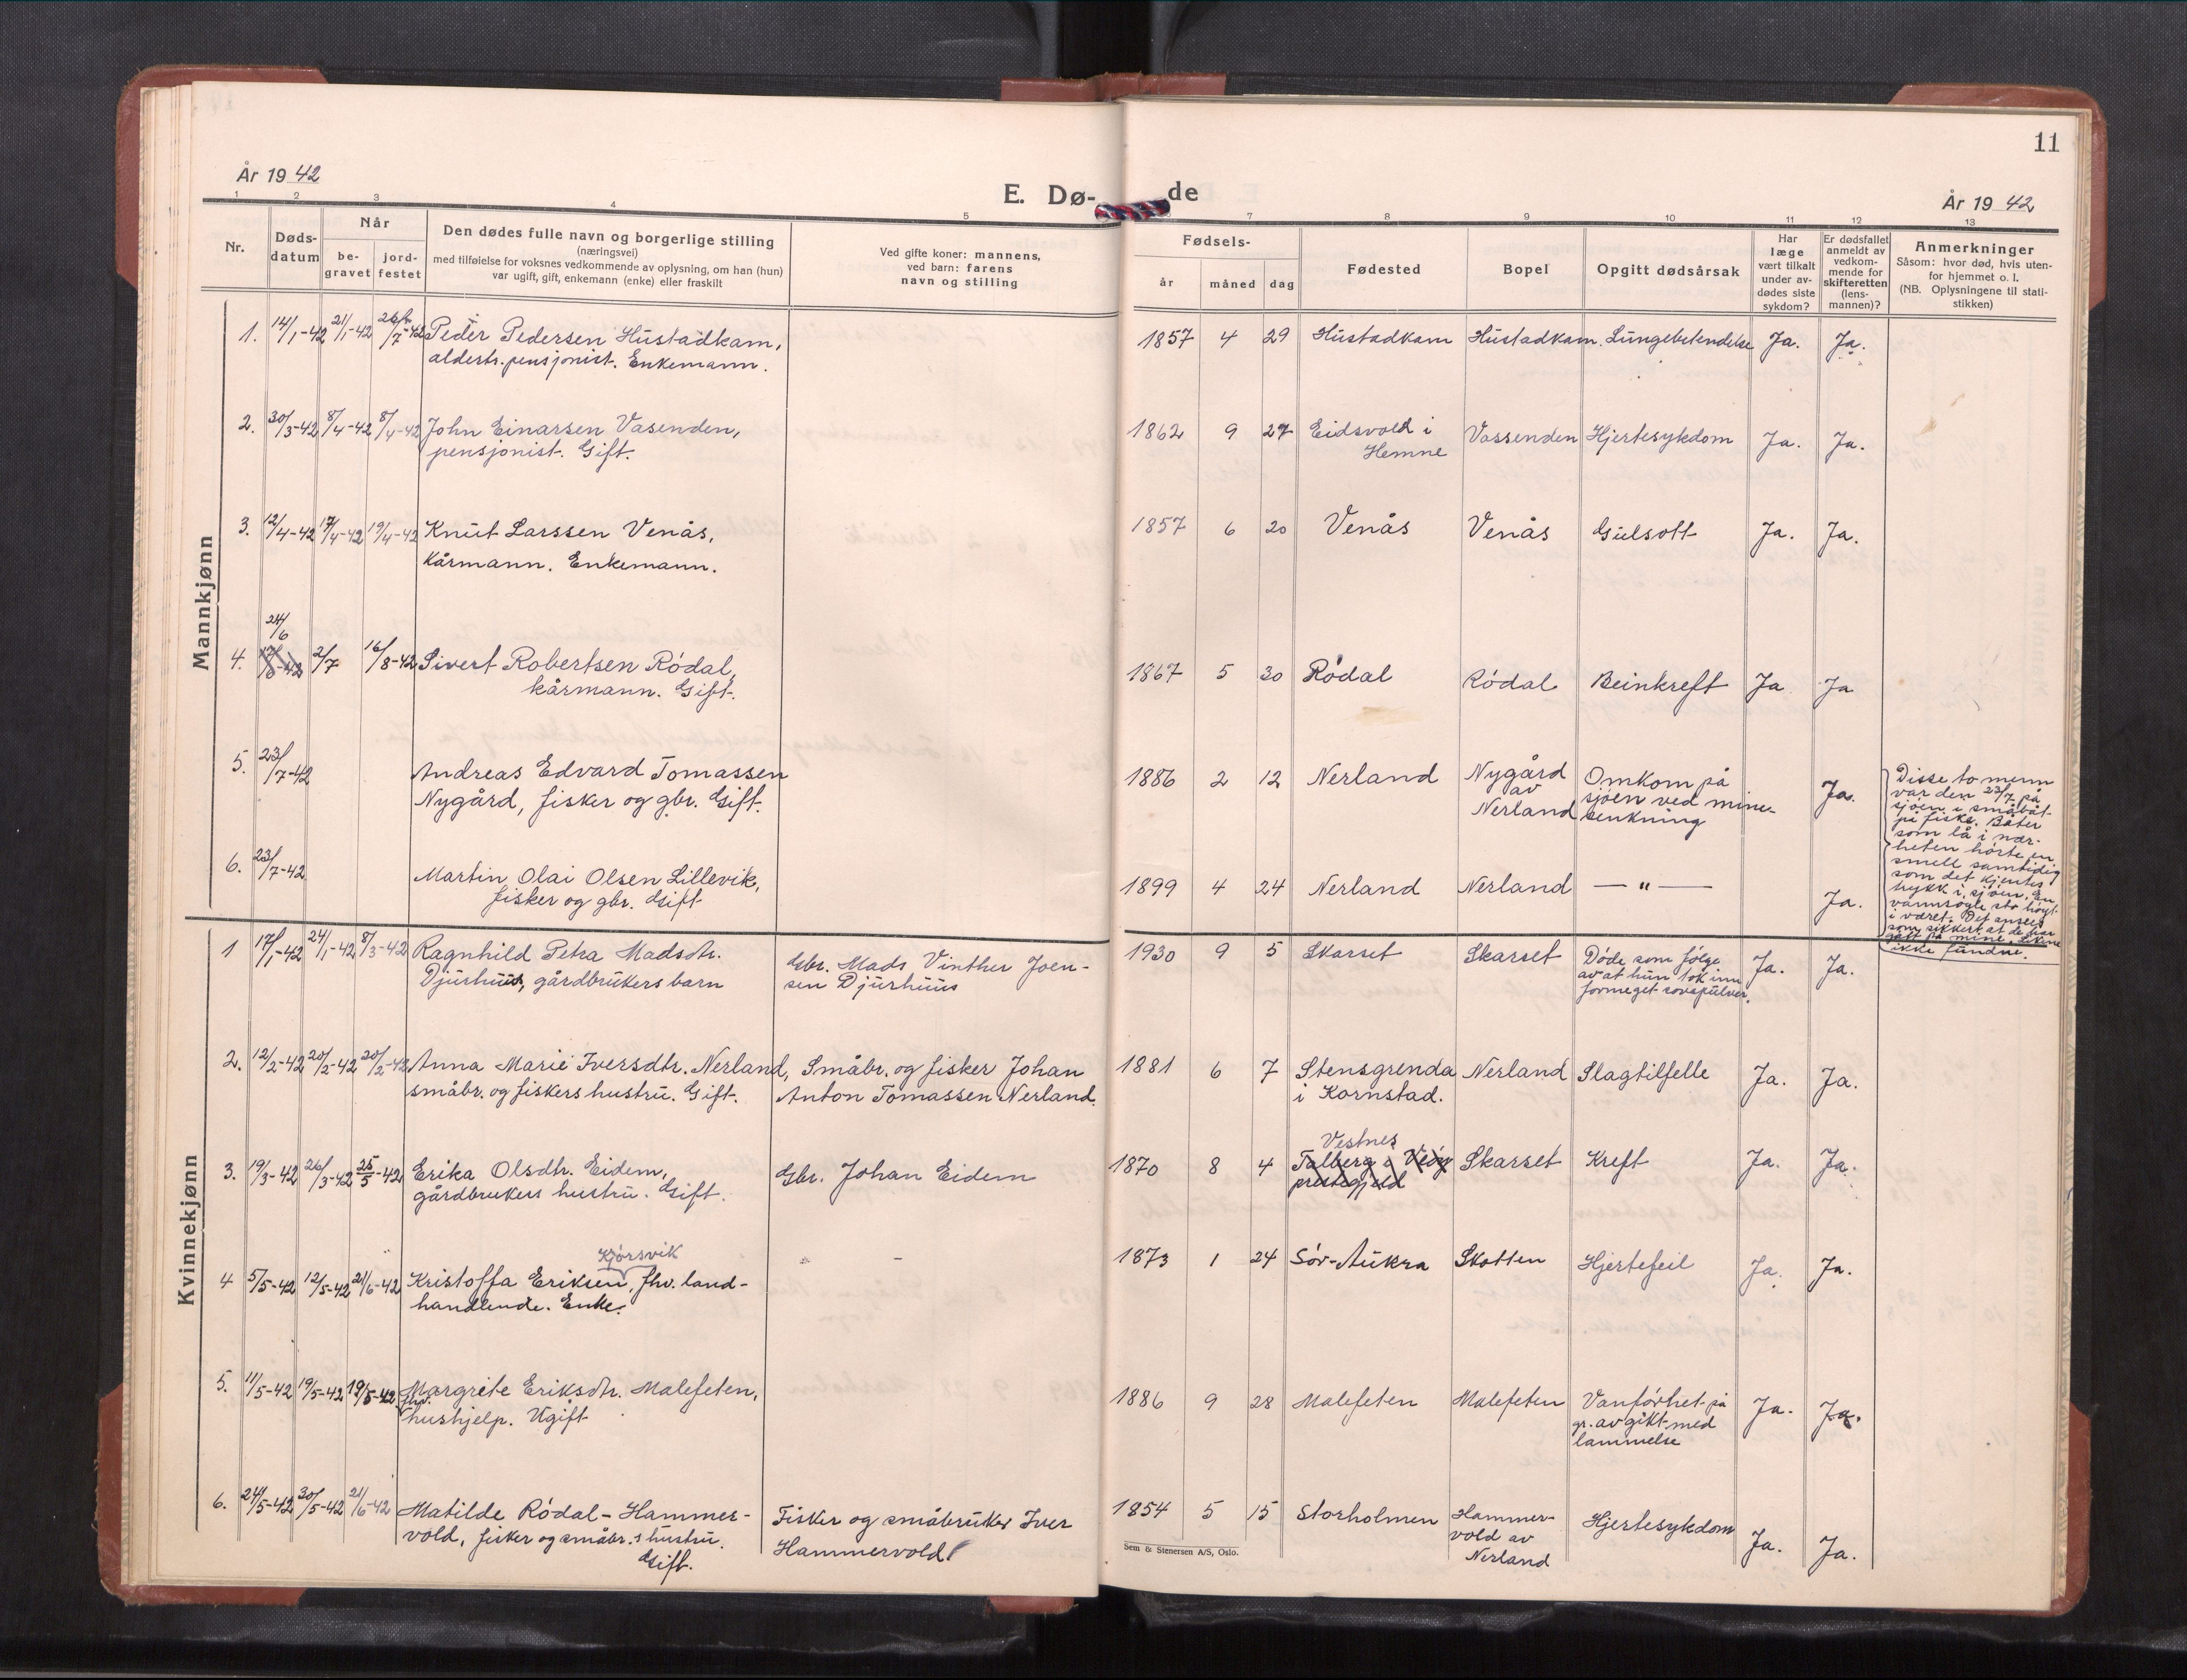 År 19 42
E. Dø-
de
11
År 19 42
1 2 3 4 5
7 8 9 10 11 12 13
Nr.
Døds-
datum
Når
be-
gravet
jord-
festet
Den dødes fulle navn og borgerlige stilling
(næringsvei)
med tilføielse for voksnes vedkommende av oplysning, om han (hun)
var ugift, gift, enkemann (enke) eller fraskilt
Ved gifte koner: mannens,
ved barn: farens
navn og stilling
Fødsels-
år måned dag
Fødested
Bopel
Opgitt dødsårsak
Har
læge
vært tilkalt
under av-
dødes siste
sykdom?
Er dødsfallet
anmeldt av
vedkom-
mende for
skifteretten
(lens-
mannen)?
Anmerkninger
Såsom: hvor død, hvis uten-
for hjemmet o. l.
(NB. Oplysningene til stati-
stikken)
Mannkjønn
1. 14/1-42 21/1-42 26/7-42 Peder Pedersen Hustadkam,
alderstr.pensjonist. Enkemann.
1857 4 29 Hustadkam Hustadkam. Lungebetendelse Ja. Ja.
2. 30/3-42 8/4-42 8/4-42 John Einarsen Vasenden,
pensjonist. Gift.
1862 9 27 Eidsvold i
Hemne
Vassenden Hjertesykdom Ja. Ja.
3. 12/4-42 17/4-42 19/4-42 Knut Larssen Venås,
Kårmann. Enkemann.
1857 6 20 Venås Venås Gulsott Ja. Ja.
24/6
4. 2/7 16/8-42 Sivert Robertsen Ródal,
kårmann. Gift.
1867 5 30 Ródal Ródal Beinkreft Ja Ja
5. 23/7-42 Andreas Edvard Tomassen
Nygård, fisker og gbr. Gift.
1886 2 12 Nerland Nygård
av
Nerland
Omkom på
sjöen ved mine-
senkning
Ja.
Disse to menn
var den 23/7 på
sjöen i småbåt
på fiske. Båter
som lå i nær-
heten hörte en
smell samtidig
som det kjentes
rykk i sjöen. En
vannsøyle sto höyt
i været. Det ansees
som sikkert at de har
gått på mine. Likene
ikke fundne.
6. 23/7-42 Martin Olai Olsen Lillevik,
fisker og gbr. Gift
1899 4 24 Nerland Nerland — " — Ja.
Kvinnekjønn
1 17/1-42 24/1-42 8/3-42 Ragnhild Petra Madsdtr.
Djurhuus, gårdbrukers barn
Gbr. Mads Vinther Joen-
sen Djurhuus
1930 9 5 Skarset Skarset Döde som fólge
av at hun tok inn
formeget sovepulver.
Ja. Ja.
2. 12/2-42 20/2-42 20/2-42 Anna Marie Iversdtr. Nerland,
småbr. og fiskers hustru. Gift.
Småbr. og fisker Johan
Anton Tomassen Nerland.
1881 6 7 Stensgrenda
i Kornstad.
Nerland Slagtilfelle Ja. Ja.
3. 19/3-42 26/3-42 25/5-42 Erika Olsdtr. Eidem,
gårdbrukers hustru. Gift.
Gbr. Johan Eidem
1870 8 4 Vestnes
Talberg i Veöy
prestegjeld
Skarset Kreft Ja. Ja.
Kjórsvik
4 5/5-42 12/5-42 21/6-42 Kristoffa Eriksen, fhv. land-
handlende. Enke.
–
1873 1 24 Sór-Aukra Skotten Hjertefeil Ja. Ja.
5. 11/5-42 19/5-42 19/5-42 Margrete Eriksdtr. Malefeten,
fhv. hushjelp. Ugift
1886 9 28 Malefeten Malefeten Vanfórhet på
gr. av gikt med
lammelse
Ja. Ja.
6. 24/5-42 30/5-42 21/6-42 Matilde Ródal-Hammer-
vold, fisker og småbr.s hustru.
Gift.
Fisker og småbruker Iver
Hammervold
1854 5 15 Storholmen Hammer-
vold av
Nerland
Hjertesykdom Ja. Ja.
Sem & Stenersen A/S, Oslo.